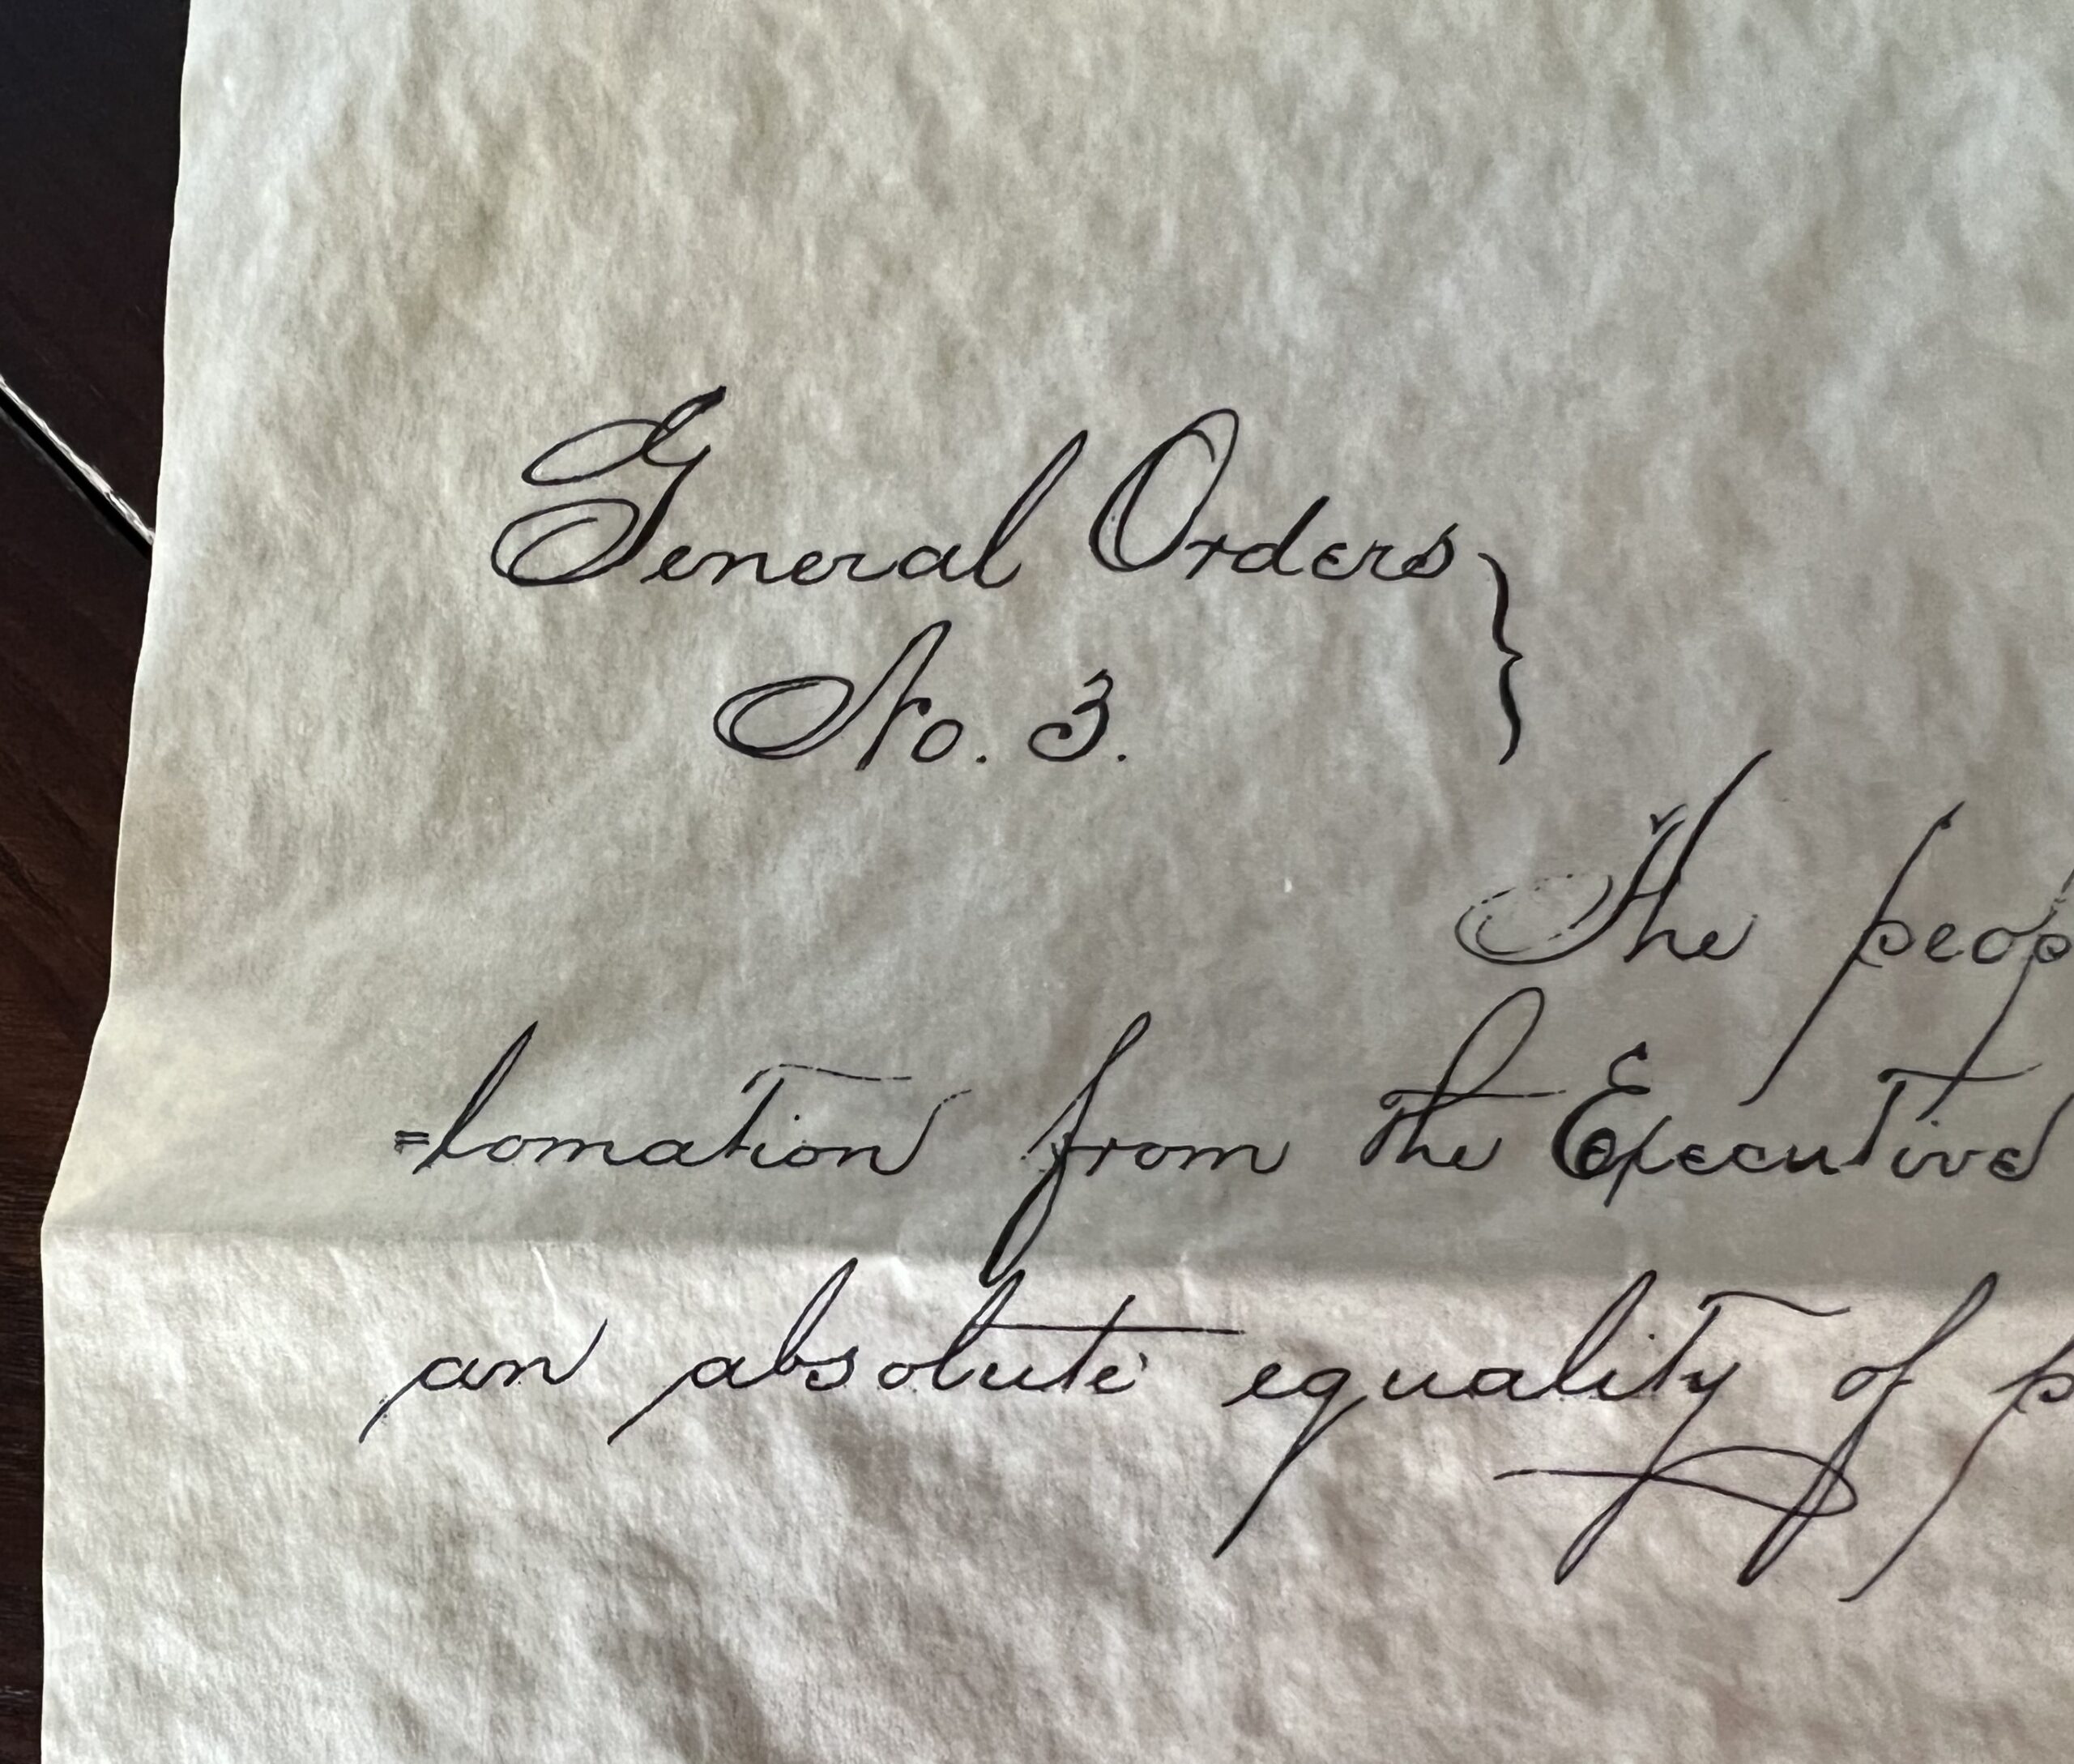 General Orders }
No. 3.
The peop
=lomation from the Executive
an absolute equality of p